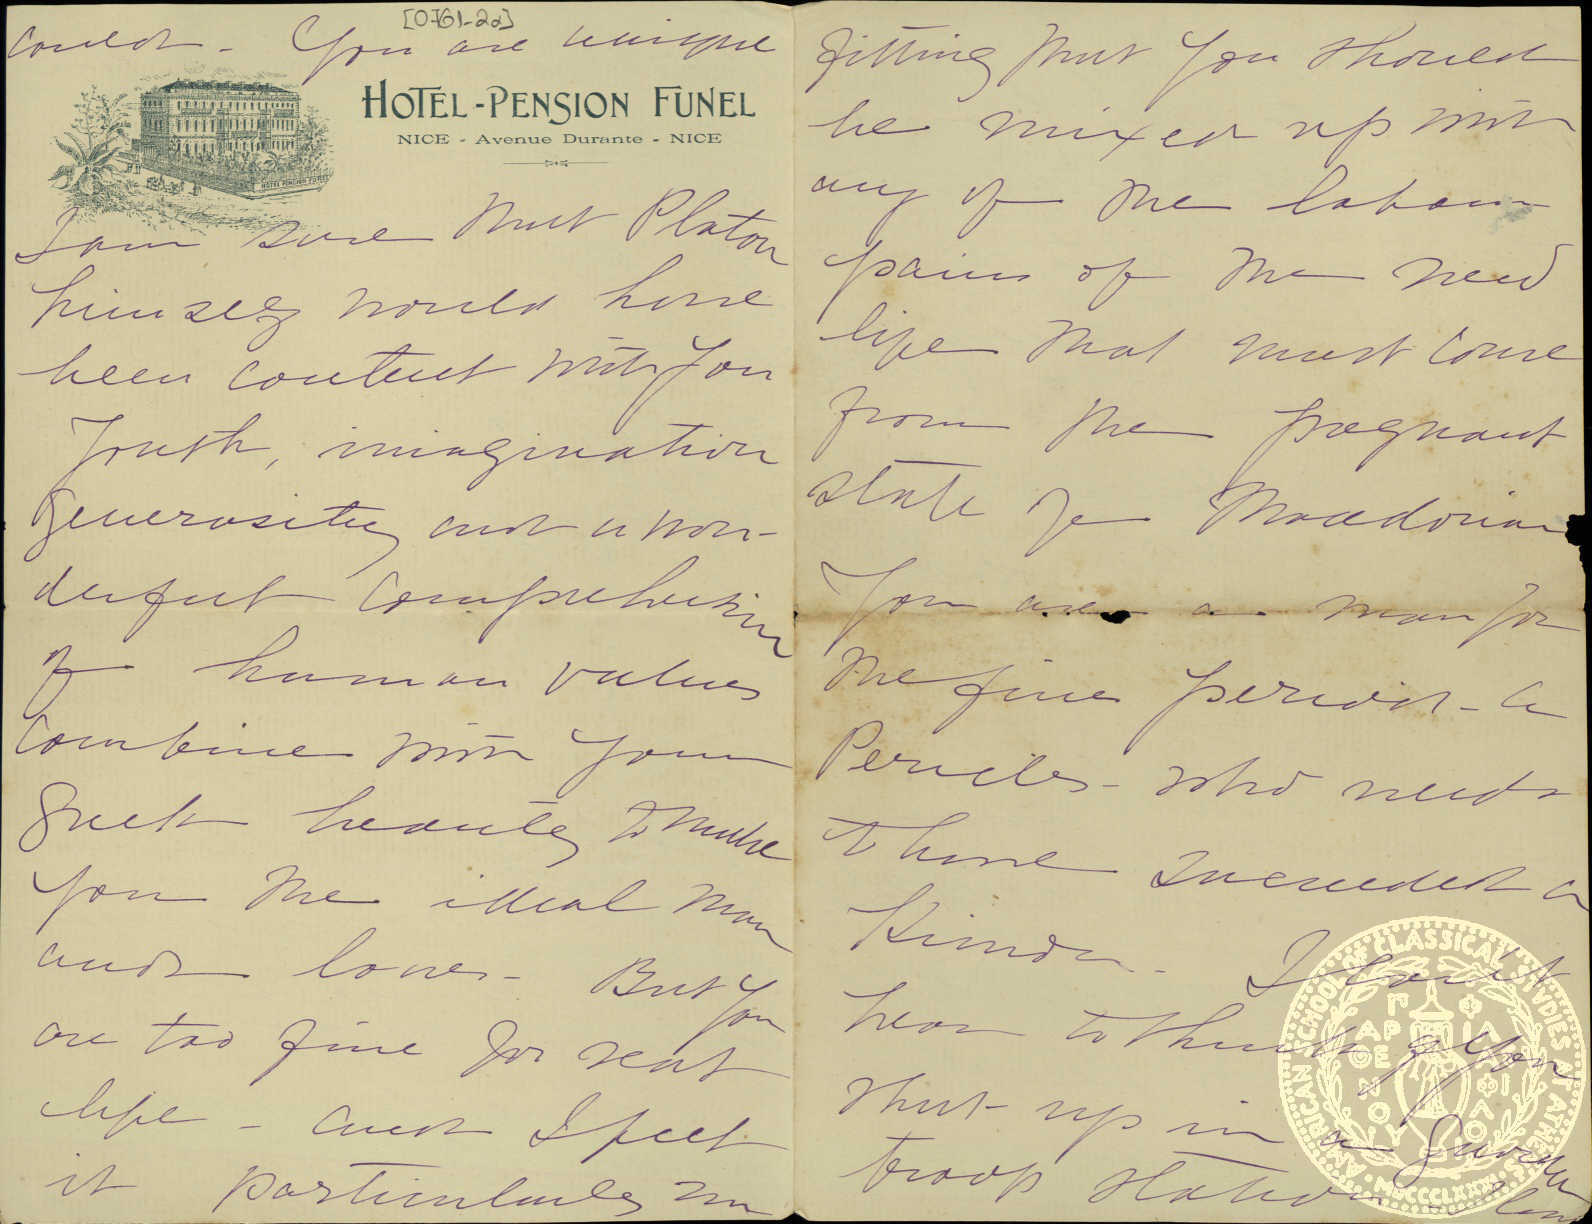 [0761-2a]
could - You are unique
HOTEL-PENSION FUNEL
NICE - Avenue Durante - NICE
HOTEL PENSION FUNEL
I am sure that Platon
himself would have
been content with you
Youth, imagination
generosity and a won-
derful comprehension
of human values
combine with your
Greek beauty to make
you the ideal man
and lover - But you
are too fine for real
life - and I feel
it particularly un
fitting that you should
be mixed up with
any of the labour
pains of the new
life that must come
from the pregnant
state of Macedonia
You are a man for
the fine period - a
Pericles - who needs
to have succeeded a
Kimon - I can't
bear to think of you
shut up in a
troop station
AMERICAN SCHOOL OF CLASSICAL STUDIES AT ATHENS
ΠΑΡΘΕΝΟΥ
ΦΙΛΑΣ ΦΙΛΟΙ
MDCCCLXXXI